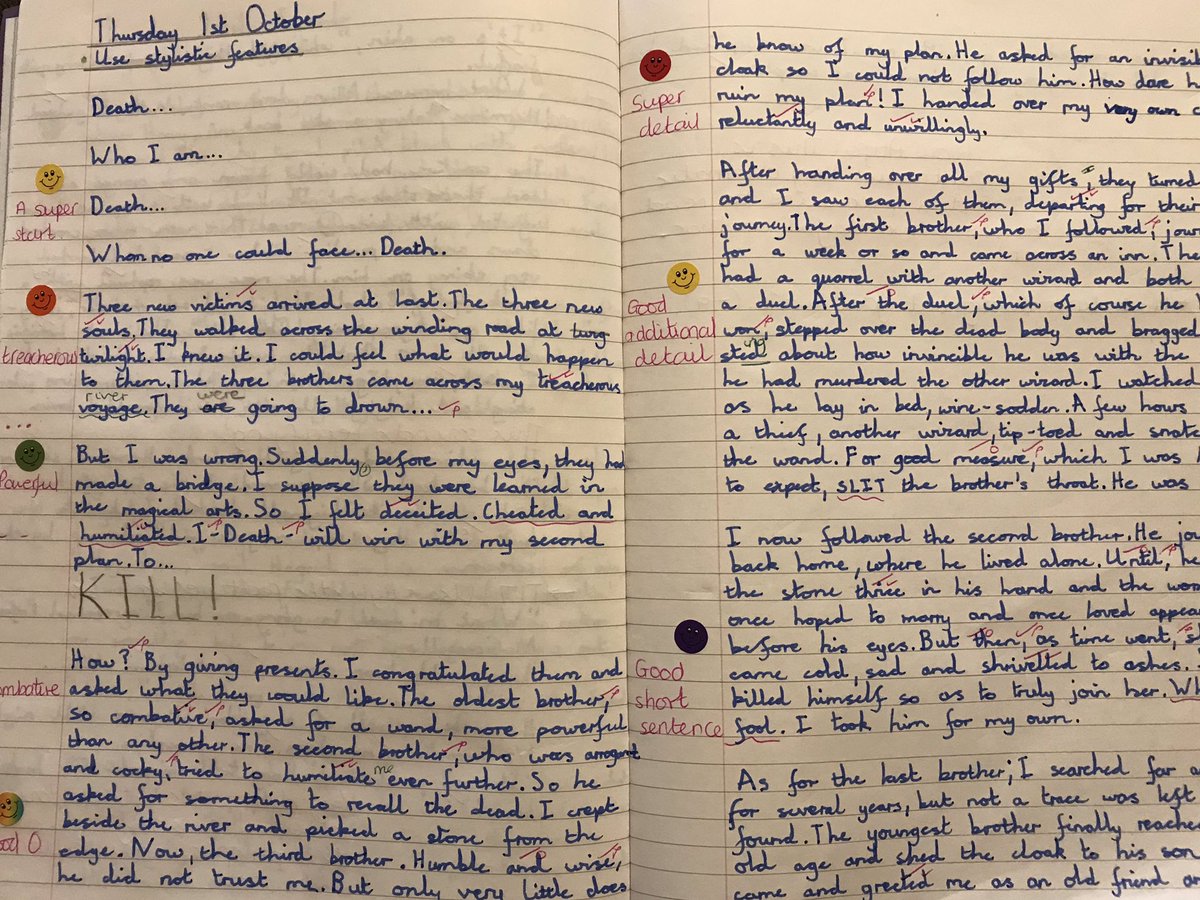 Thursday 1st October
Use stylistic features
Death...
Who I am...
A super
start
Death...
When no one could face... Death.
Three new victims arrived at last. The three new
souls. They walked across the winding road at twig-
treacherous
twilight. I knew it. I could feel what would happen
to them. The three brothers came across my treacherous
river were
voyage. They are going to drown...
...
But I was wrong. Suddenly, before my eyes, they had
Powerful
made a bridge. I suppose they were learned in
the magical arts. So I felt deceited. Cheated and
humiliated. I-Death-will win with my second
plan. To...
KILL!
How? By giving presents. I congratulated them and
ombative
asked what they would like. The oldest brother,
so combative, asked for a wand, more powerful
than any other. The second brother, who was arrogant
and cocky, tried to humiliate me even further. So he
asked for something to recall the dead. I crept
beside the river and picked a stone from the
ood O
edge. Now, the third brother. Humble and wise,
he did not trust me. But only very little does
he know of my plan. He asked for an invisib
cloak so I could not follow him. How dare h
Super
detail
ruin my plan! I handed over my very own c
reluctantly and unwillingly.
After handing over all my gifts, they turned
and I saw each of them, departing for their
journey. The first brother, who I followed, jour
for a week or so and came across an inn. The
had a quarrel with another wizard and both
Good
additional
detail
a duel. After the duel, which of course he
won, stepped over the dead body and bragged
sted about how invincible he was with the
he had murdered the other wizard. I watched
as he lay in bed, wine-sodden. A few hours
a thief, another wizard, tip-toed and snatc
the wand. For good measure, which I was
to expect, SLIT the brother's throat. He was
I now followed the second brother. He jou
back home, where he lived alone. Until, he
the stone thrice in his hand and the wom
once hoped to marry and once loved appea
before his eyes. But then, as time went, s
Good
short
sentence
came cold, sad and shrivelled to ashes.
killed himself so as to truly join her. Wh
fool. I took him for my own.
As for the last brother; I searched far a
for several years, but not a trace was left
found. The youngest brother finally reache
old age and shed the cloak to his son
came and greeted me as an old friend an